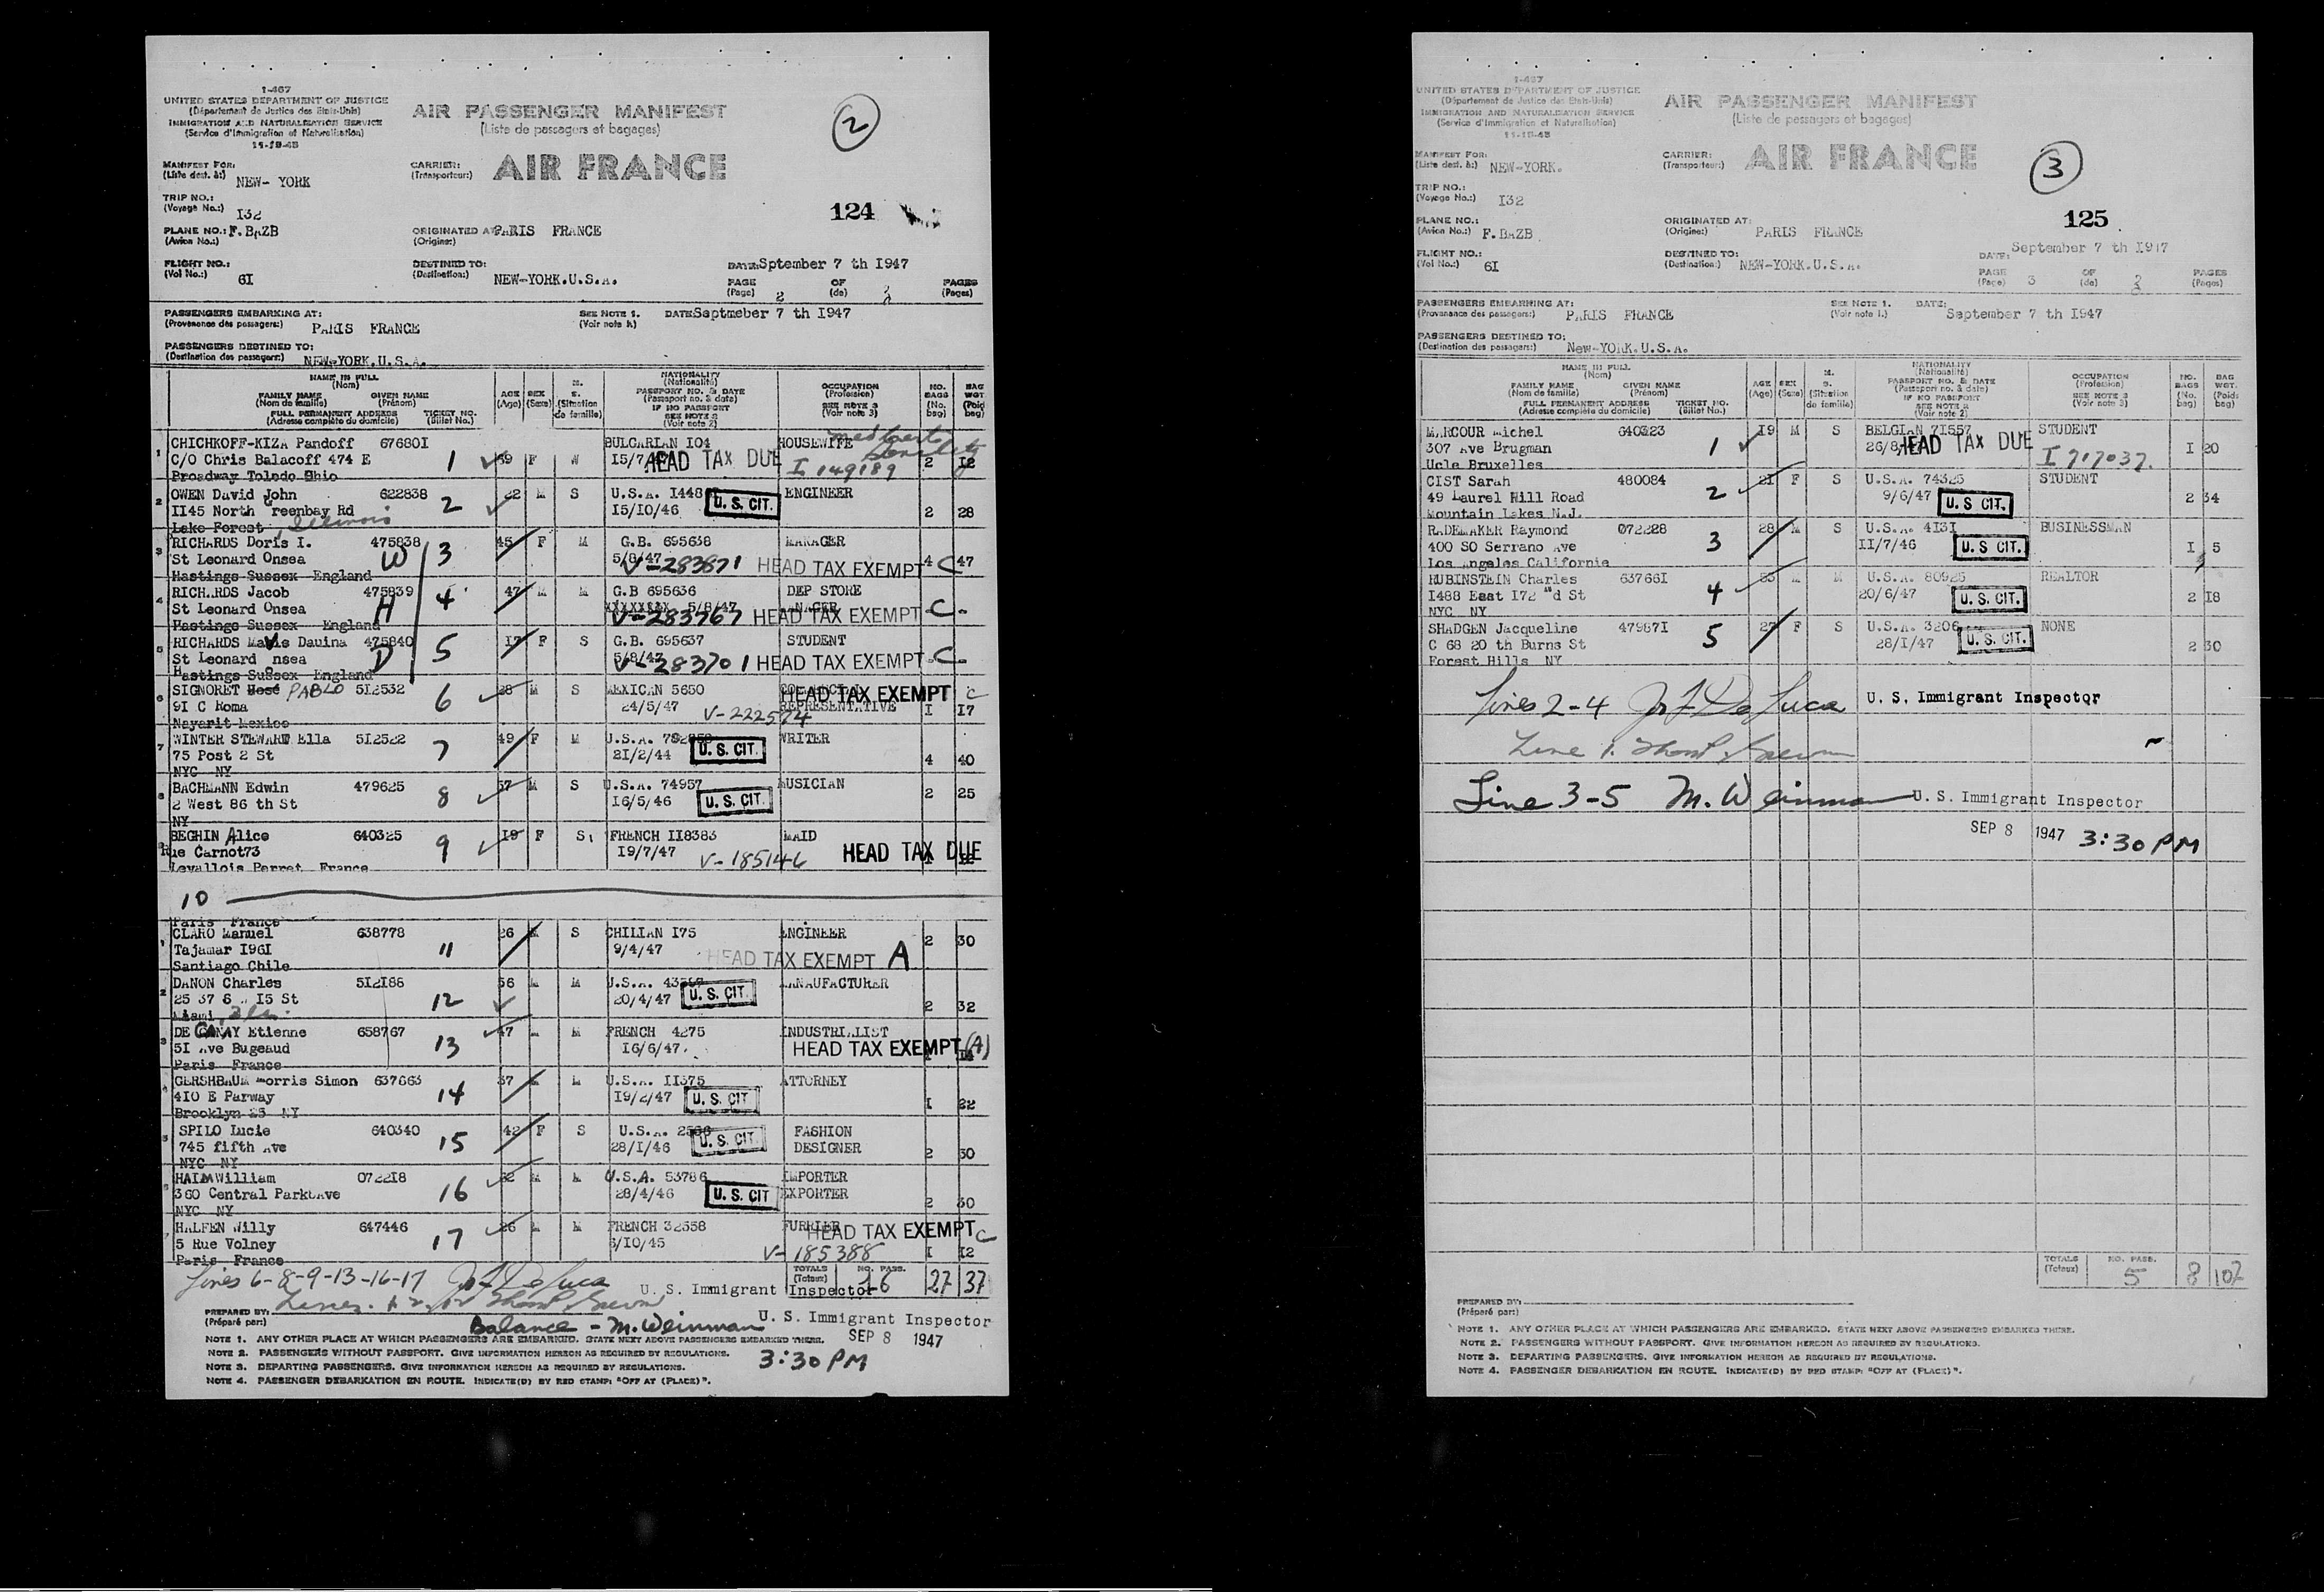 1-467
UNITED STATES DEPARTMENT OF JUSTICE
(Département de Justice des Etats-Unis)
IMMIGRATION AND NATURALIZATION SERVICE
(Service d'Immigration et Naturalisation)
11-19-45
AIR PASSENGER MANIFEST
(Liste de passagers et bagages)
2
MANIFEST FOR:
(Liste dest. à:) NEW- YORK
CARRIER:
(Transporteur:) AIR FRANCE
TRIP NO.:
(Voyage No.:) I32
124
PLANE NO.: F.BAZB
(Avion No.:)
ORIGINATED AT PARIS FRANCE
(Origine:)
FLIGHT NO.:
(Vol No.:) 6I
DESTINED TO:
(Destination:) NEW-YORK.U.S.A.
DATE: Sptember 7 th I947
PAGE 2 OF 3 PAGES
(Page) (de) (Pages)
PASSENGERS EMBARKING AT:
(Provenance des passagers:) PARIS FRANCE
SEE NOTE 1. DATE: Septmeber 7 th I947
(Voir note 1.)
PASSENGERS DESTINED TO:
(Destination des passagers:) NEW-YORK.U.S.A.
NAME IN FULL
(Nom)
FAMILY NAME GIVEN NAME
(Nom de famille) (Prénom)
FULL PERMANENT ADDRESS TICKET NO.
(Adresse complète du domicile) (Billet No.)
AGE (Age)
SEX (Sexe)
M. S. (Situation de famille)
NATIONALITY
(Nationalité)
PASSPORT NO. & DATE
(Passeport no. & date)
IF NO PASSPORT
SEE NOTE 2
(Voir note 2)
OCCUPATION
(Profession)
SEE NOTE 3
(Voir note 3)
NO. BAGS (No. bag)
BAG WGT. (Poids bag)
CHICHKOFF-KIZA Pandoff 67680I 1 F W BULGARIAN IO4 HOUSEWIFE
C/O Chris Balacoff 474 E I5/7 HEAD TAX DUE I 149189 2 I2
Broadway Toledo Ohio
OWEN David John 622838 2 22 M S U.S.A. I448 U.S. CIT. ENGINEER
II45 North Greenbay Rd I5/IO/46 2 28
Lake Forest, Illinois
RICHARDS Doris I. 475838 W 3 45 F M G.B. 695638 MANAGER
St Leonard Onsea 5/8/47 V-283871 HEAD TAX EXEMPT 4 C 47
Hastings Sussex England
RICHARDS Jacob 475839 H 4 47 M M G.B 695636 DEP STORE
St Leonard Onsea XXXXXXXX 5/8/47 MANAGER
Hastings Sussex England V-283767 HEAD TAX EXEMPT C -
RICHARDS Mavis Dauina 475840 D 5 I7 F S G.B. 695637 STUDENT
St Leonard Onsea 5/8/47 V-283701 HEAD TAX EXEMPT C -
Hastings Sussex England
SIGNORET José PABLO 5I2532 6 28 M S MEXICAN 5650 HEAD TAX EXEMPT C
9I C Roma 24/5/47 V-222574 REPRESENTATIVE I I7
Nayarit Mexico
WINTER STEWART Ella 5I2522 7 49 F M U.S.A. U.S. CIT. WRITER
75 Post 2 St 2I/2/44 4 40
NYC NY
BACHMANN Edwin 479625 8 57 M S U.S.A. 74957 MUSICIAN
2 West 86 th St I6/5/46 U.S. CIT. 2 25
NY
BEGHIN Alice 640325 9 I9 F S FRENCH II8383 MAID
Rue Carnot73 I9/7/47 V-185146 HEAD TAX DUE
Levallois Perret France
10
Paris France
CLARO Manuel 638778 11 26 M S CHILIAN I75 ENGINEER
Tajamar I96I 9/4/47 HEAD TAX EXEMPT A 2 30
Santiago Chile
DANON Charles 5I2I86 12 56 M M U.S.A. U.S. CIT. MANAUFACTURER
25 37 S W I5 St 20/4/47 2 32
Miami, Fla.
DE GANAY Etienne 658767 13 47 M M FRENCH 4275 INDUSTRIALIST
5I Ave Bugeaud I6/6/47. HEAD TAX EXEMPT (A)
Paris France
GERSHBAUM Morris Simon 637663 14 37 M M U.S.A. II375 ATTORNEY
4IO E Parway I9/2/47 U.S. CIT I 22
Brooklyn 25 NY
SPILO Lucie 640340 15 42 F S U.S.A. FASHION
745 fifth Ave 28/I/46 U.S. CIT. DESIGNER 2 30
NYC NY
HAIM William 0722I8 16 M M U.S.A. 53786 IMPORTER
360 Central ParkAve 28/4/46 U.S. CIT EXPORTER 2 30
NYC NY
HALFEN Willy 647446 17 26 M M FRENCH 32558 FURRIER
5 Rue Volney 6/IO/45 HEAD TAX EXEMPT C
Paris France V-185388 I I2
Lines 6-8-9-13-16-17 De Luca U. S. Immigrant Inspector
TOTALS (Totaux) NO. PASS. 16 27 37
PREPARED BY:
(Préparé par:)
Balance - M. Weinman U. S. Immigrant Inspector
SEP 8 1947
3:30 PM
NOTE 1. ANY OTHER PLACE AT WHICH PASSENGERS ARE EMBARKED. STATE NEXT ABOVE PASSENGERS EMBARKED THERE.
NOTE 2. PASSENGERS WITHOUT PASSPORT. GIVE INFORMATION HEREON AS REQUIRED BY REGULATIONS.
NOTE 3. DEPARTING PASSENGERS. GIVE INFORMATION HEREON AS REQUIRED BY REGULATIONS.
NOTE 4. PASSENGER DEBARKATION EN ROUTE. INDICATE(D) BY RED STAMP: "OFF AT (PLACE)".
1-467
UNITED STATES DEPARTMENT OF JUSTICE
(Département de Justice des Etats-Unis)
IMMIGRATION AND NATURALIZATION SERVICE
(Service d'Immigration et Naturalisation)
11-19-45
AIR PASSENGER MANIFEST
(Liste de passagers et bagages)
3
MANIFEST FOR:
(Liste dest. à:) NEW-YORK.
CARRIER:
(Transporteur:) AIR FRANCE
TRIP NO.:
(Voyage No.:) I32
125
PLANE NO.:
(Avion No.:) F.BAZB
ORIGINATED AT:
(Origine:) PARIS FRANCE
FLIGHT NO.:
(Vol No.:) 6I
DESTINED TO:
(Destination:) NEW-YORK.U.S.A.
DATE: September 7 th I947
PAGE 3 OF 3 PAGES
(Page) (de) (Pages)
PASSENGERS EMBARKING AT:
(Provenance des passagers:) PARIS FRANCE
SEE NOTE 1. DATE:
(Voir note 1.) September 7 th I947
PASSENGERS DESTINED TO:
(Destination des passagers:) New-YORK.U.S.A.
NAME IN FULL
(Nom)
FAMILY NAME GIVEN NAME
(Nom de famille) (Prénom)
FULL PERMANENT ADDRESS TICKET NO.
(Adresse complète du domicile) (Billet No.)
AGE (Age)
SEX (Sexe)
M. S. (Situation de famille)
NATIONALITY
(Nationalité)
PASSPORT NO. & DATE
(Passeport no. & date)
IF NO PASSPORT
SEE NOTE 2
(Voir note 2)
OCCUPATION
(Profession)
SEE NOTE 3
(Voir note 3)
NO. BAGS (No. bag)
BAG WGT. (Poids bag)
MARCOUR Michel 640323 1 I9 M S BELGIAN 7I557 STUDENT
307 Ave Brugman 26/8 HEAD TAX DUE I 717037. I 20
Ucle Bruxelles
CIST Sarah 480084 2 2I F S U.S.A. 74325 STUDENT
49 Laurel Hill Road 9/6/47 U.S CIT. 2 34
Mountain Lakes N.J.
RADEMAKER Raymond 072228 3 28 M S U.S.A. 4I3I BUSINESSMAN
400 SO Serrano Ave II/7/46 U.S CIT. I 5
Los Angeles California
RUBINSTEIN Charles 63766I 4 M M U.S.A. 80925 REALTOR
I488 East I72 nd St 20/6/47 U.S. CIT. 2 I8
NYC NY
SHADGEN Jacqueline 47987I 5 27 F S U.S.A. 3206 NONE
C 68 20 th Burns St 28/I/47 U.S. CIT. 2 30
Forest Hills NY
Lines 2-4 De Luca U. S. Immigrant Inspector
Line 1.
Line 3-5 M. Weinman U. S. Immigrant Inspector
SEP 8 1947 3:30 PM
TOTALS (Totaux) NO. PASS. 5 8 107
PREPARED BY:
(Préparé par:)
NOTE 1. ANY OTHER PLACE AT WHICH PASSENGERS ARE EMBARKED. STATE NEXT ABOVE PASSENGERS EMBARKED THERE.
NOTE 2. PASSENGERS WITHOUT PASSPORT. GIVE INFORMATION HEREON AS REQUIRED BY REGULATIONS.
NOTE 3. DEPARTING PASSENGERS. GIVE INFORMATION HEREON AS REQUIRED BY REGULATIONS.
NOTE 4. PASSENGER DEBARKATION EN ROUTE. INDICATE(D) BY RED STAMP: "OFF AT (PLACE)".